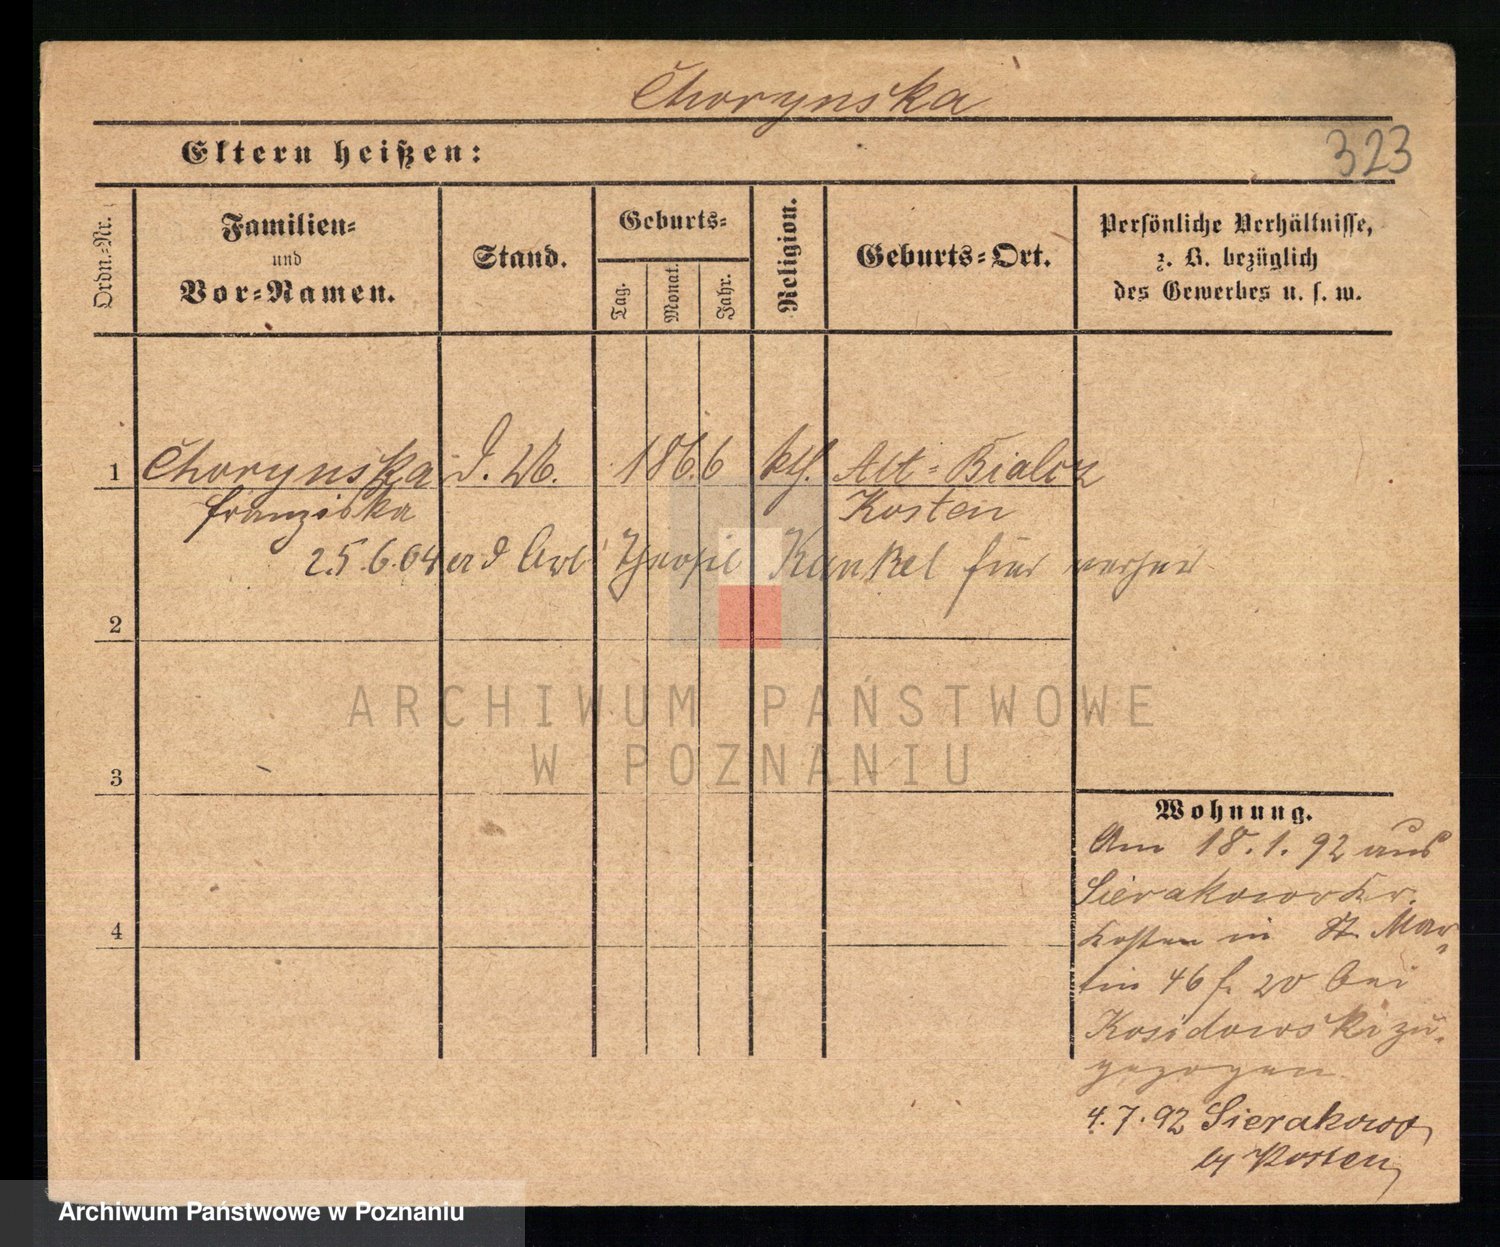 Chorynska
323
Eltern heißen:
Ordn.-Nr.
Familien-
und
Vor-Namen.
Stand.
Geburts-
Tag.
Monat.
Jahr.
Religion.
Geburts-Ort.
Persönliche Verhältnisse,
z. B. bezüglich
des Gewerbes u. s. w.
1
Chorynska
Franziska
1866
kth.
Alt-Bialcz
Kosten
25.6.04 Kunkel hier
2
3
4
ARCHIWUM PAŃSTWOWE
W POZNANIU
Wohnung.
Am 18.1.92 aus
Sierakowo Kr.
Kosten in St. Mar-
tin 46 20 bei
Kosidowski zu-
gezogen
4.7.92 Sierakowo,
Kosten,
Archiwum Państwowe w Poznaniu